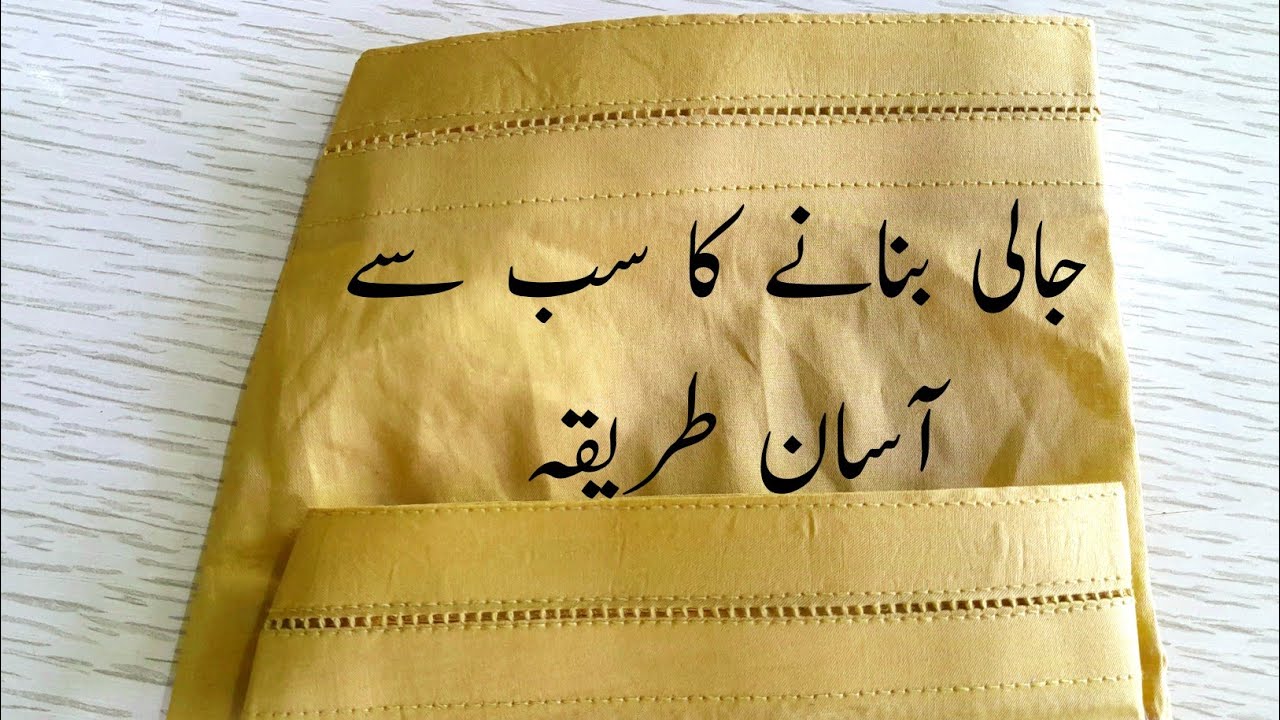 جالی بنانے کا سب سے
آسان طریقہ